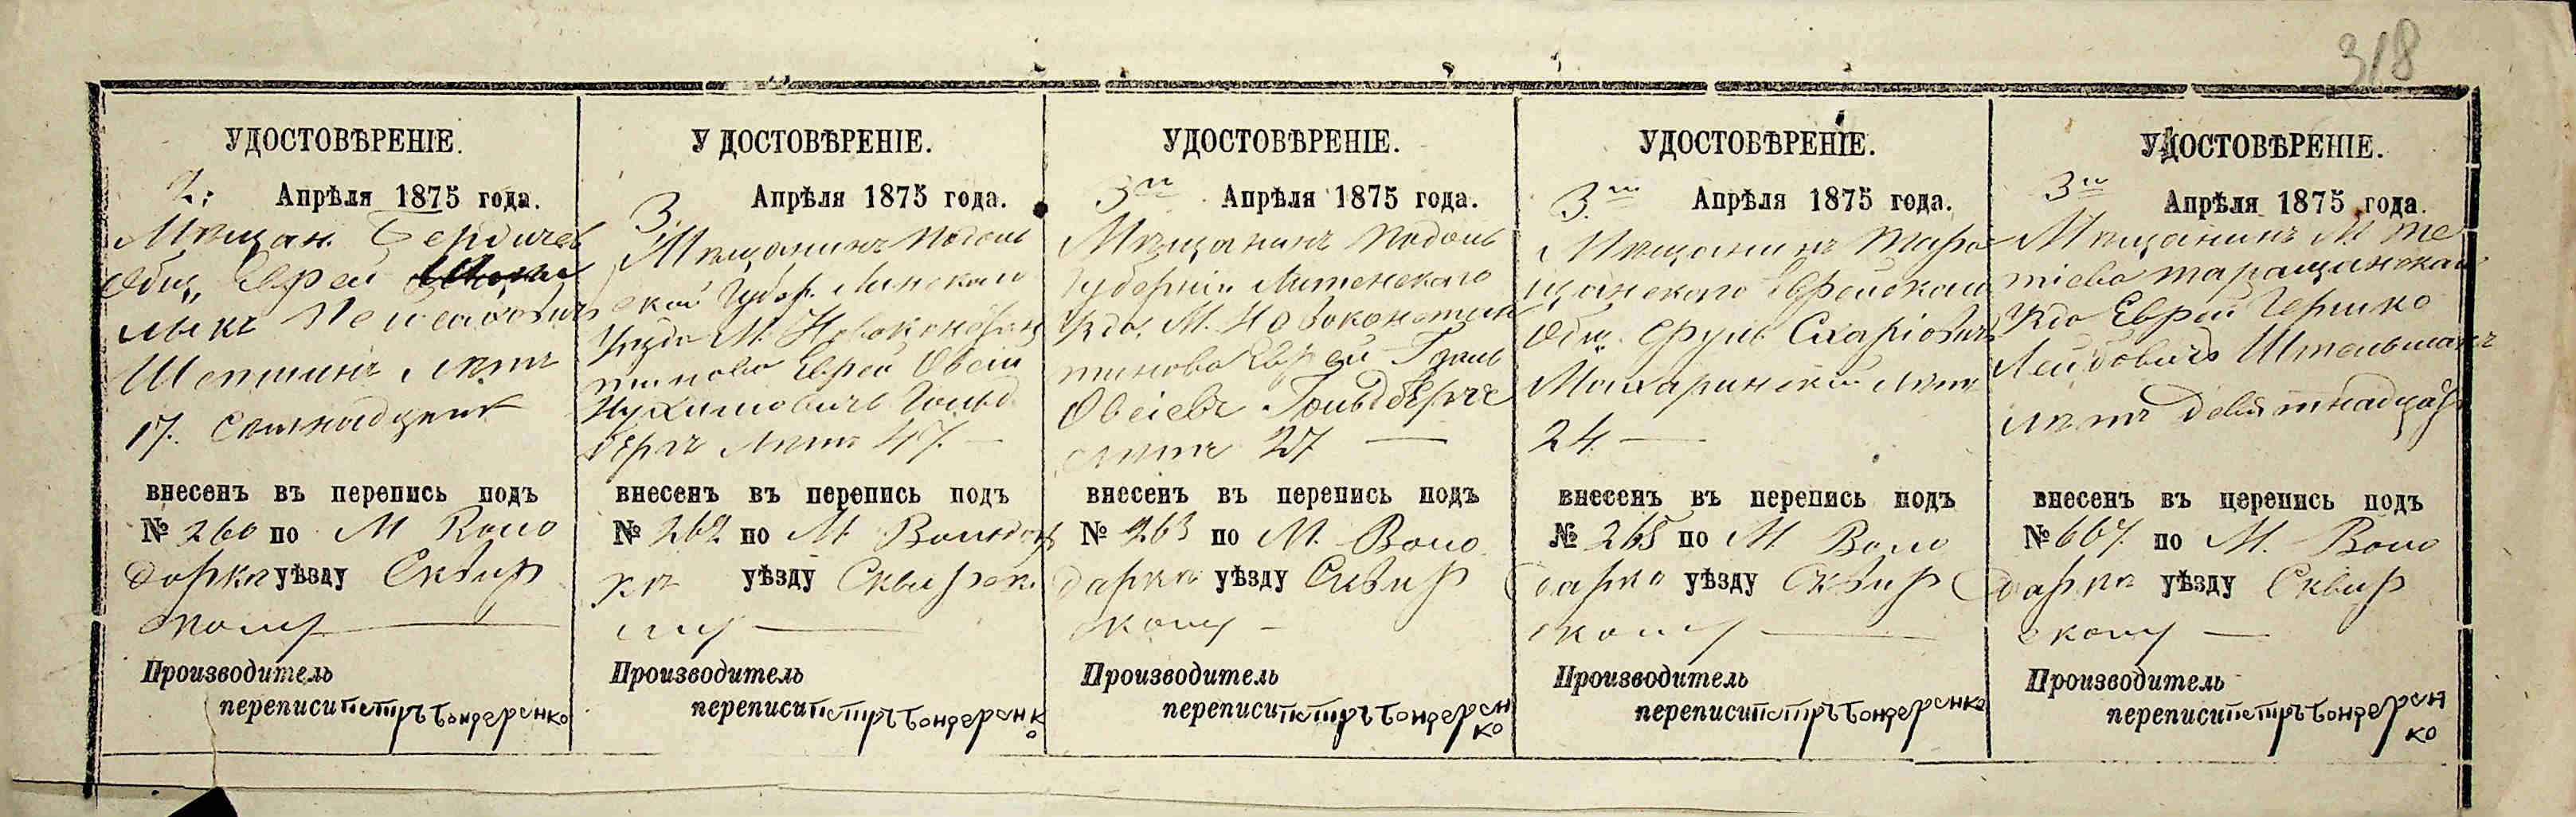 318
УДОСТОВѢРЕНІЕ.
2: Апрѣля 1875 года.
Мѣщан. Бердичев
Общ, Еврей
Шепшинъ лѣтъ
17. семнадцать
внесенъ въ перепись подъ
№ 260 по М Воло
даркѣ уѣзду Сквир
скому
Производитель
переписи Петръ Бондеренко
УДОСТОВѢРЕНІЕ.
3. Апрѣля 1875 года.
Мѣщанинъ Подоль
ской Губер.
Уѣзда М. Новоконстан
тинова Еврей Овсій
Нухимовичъ Гольд
бергъ лѣтъ 47.
внесенъ въ перепись подъ
№ 262 по М. Володар
кѣ уѣзду Сквирск.
му
Производитель
переписи Петръ Бондеренко
УДОСТОВѢРЕНІЕ.
3го Апрѣля 1875 года.
Мѣщанинъ Подоль
Губерніи Литенского
Уѣз. М. Новоконстан
тинова Еврей
Овсіевъ Гольдбергъ
лѣтъ 27
внесенъ въ перепись подъ
№ 263 по М. Воло
даркѣ уѣзду Сквир
скому
Производитель
переписи Петръ Бондерен
ко
УДОСТОВѢРЕНІЕ.
3го Апрѣля 1875 года.
Мѣщанинъ Тара
щанского Еврейскаго
Общ. Сруль
Махаринскій лѣтъ
24
внесенъ въ перепись подъ
№ 265 по М. Воло
дарка уѣзду Сквир
скому
Производитель
переписи Петръ Бондеренко
УДОСТОВѢРЕНІЕ.
3го Апрѣля 1875 года.
Мѣщанинъ М. Те
тіева таращанскаго
Уѣз Еврей Гершко
Лейбовичъ Штельмахъ
лѣтъ девятнадцать
внесенъ въ перепись подъ
№ 667. по М. Воло
даркѣ уѣзду Сквир
скому
Производитель
переписи Петръ Бондерен
ко